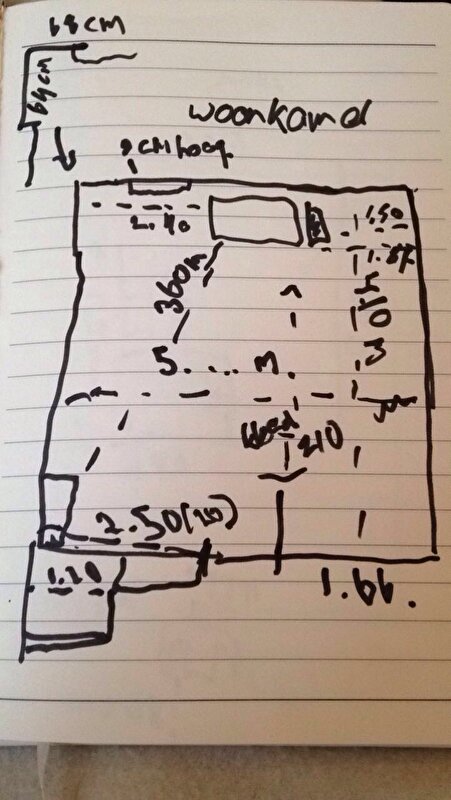 68 CM
64 CM
woonkamel
9 CM hoog
2.40
1.50
1.87
360 m
5.... m.
210
2.50 (20)
1.20
1.66.